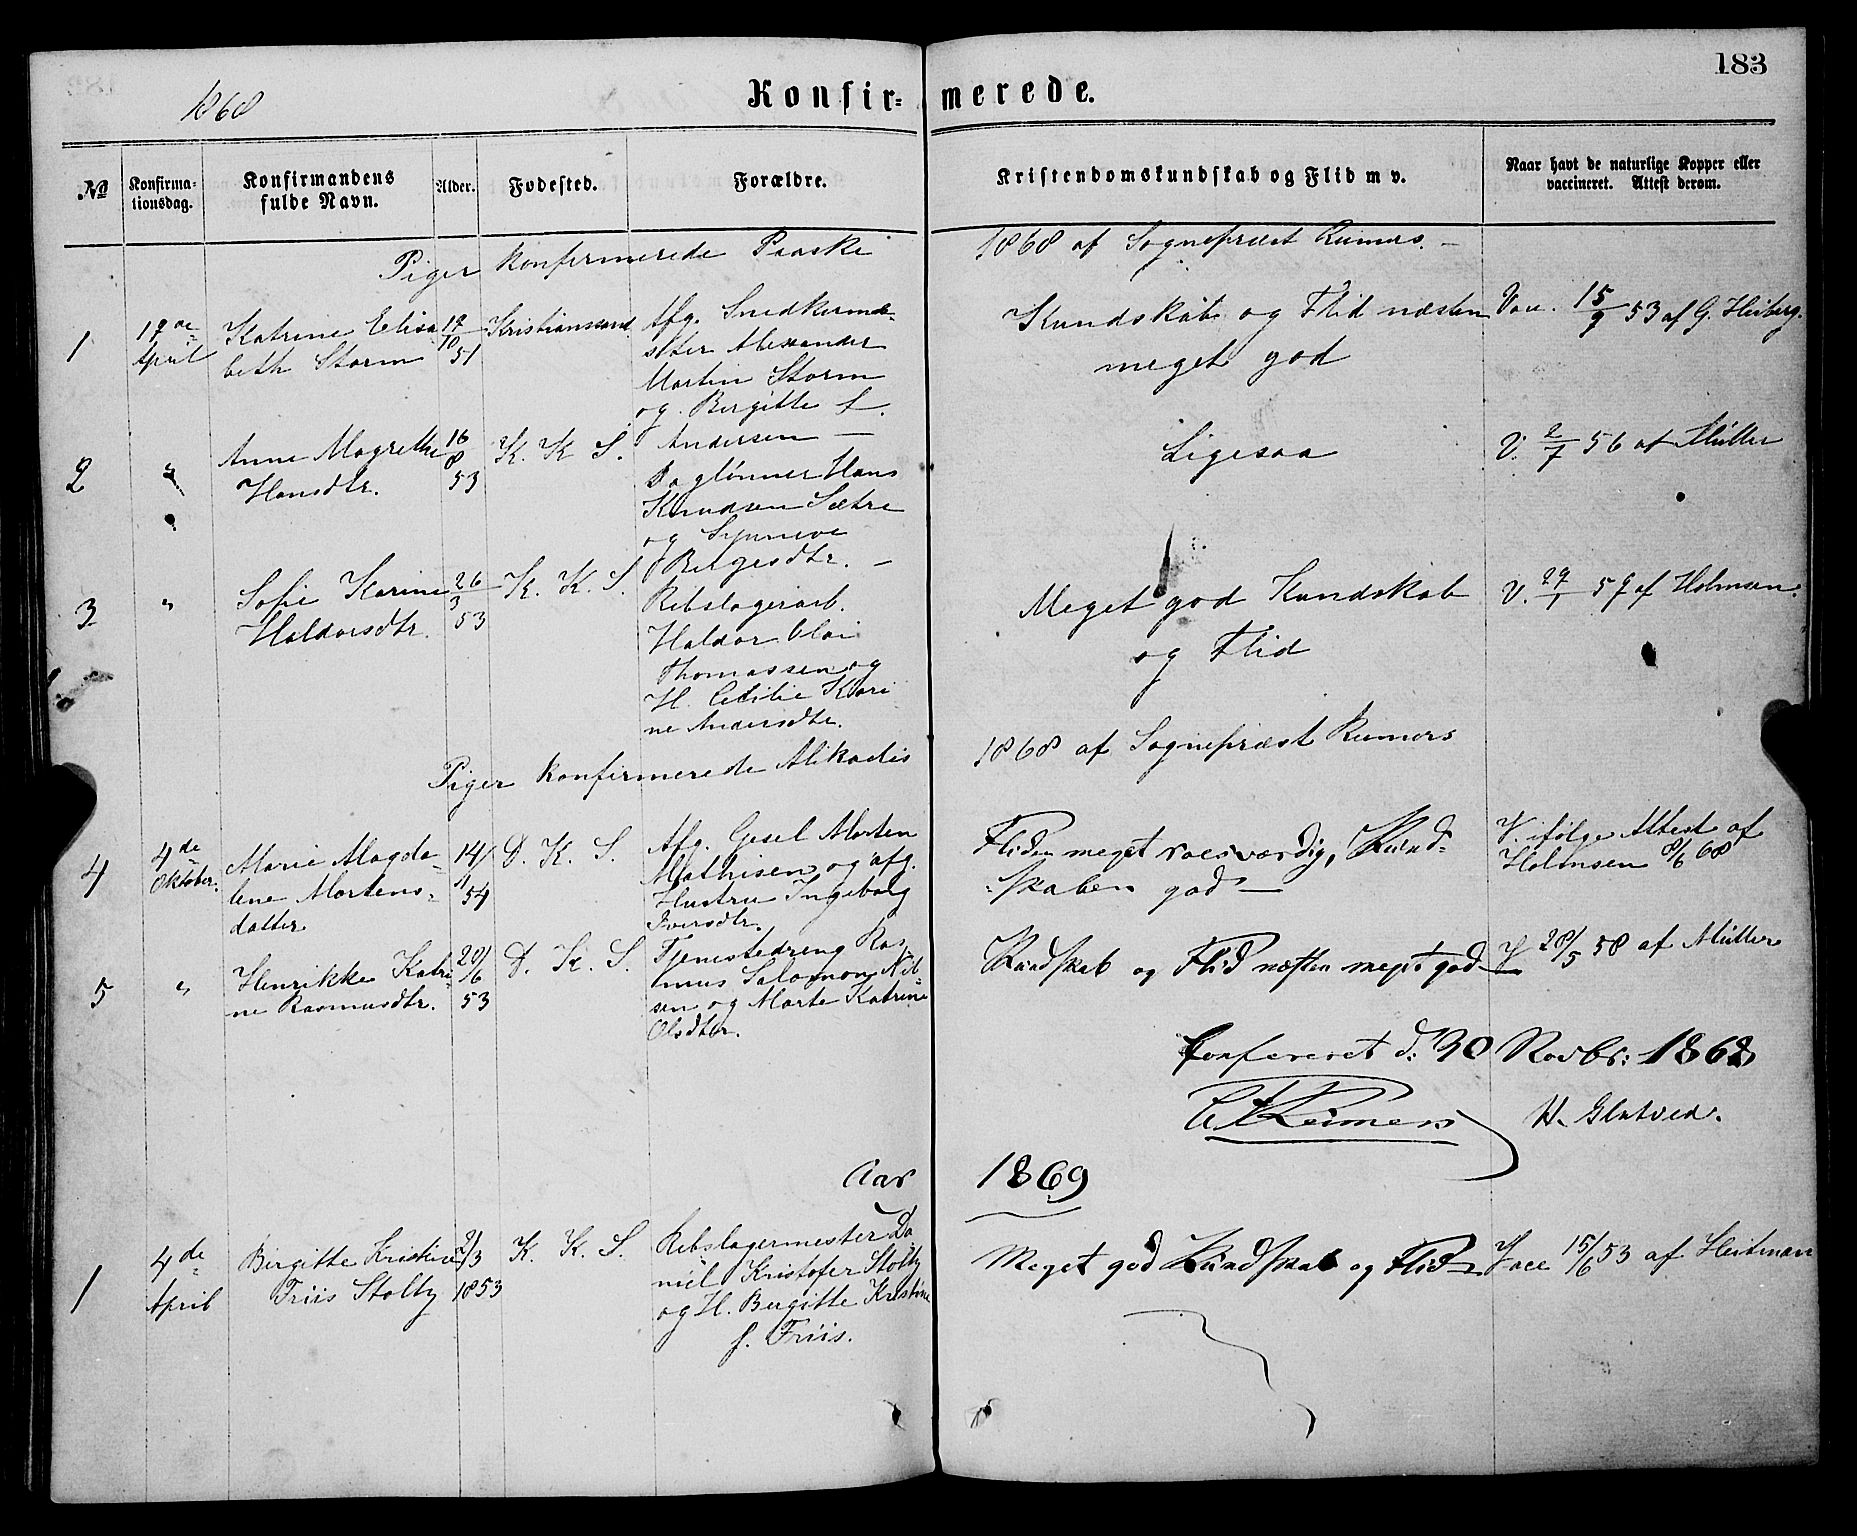 183
1868
Konfir= merede.
No
Konfirma-
tionsdag.
Konfirmandens
fulde Navn.
Alder.
Fødested.
Forældre.
Kristendomskundskab og Flid m v.
Naar havt de naturlige Kopper eller
vaccineret. Attest derom.
Piger konfirmerede Paaske 1868 af Sognepræst Reimers. –
1
17de
April
Katrine Elisa
beth Storm
17
10
51
Kristianssand
Afg. Snedkerme-
ster Alexander
Martin Storm
og Bergitte f.
Andersen —
Kundskab og Flid næsten
meget god
Vac. 15/9 53 af G. Heiberg.
2
"
Anne Magrethe
Hansdtr.
16
8
53
K. K. S.
DagLønner Hans
Knudsen Sætre
og Synneve
Børgesdtr. –
Ligesaa
V. 2/7 56 af Müller
3
"
Sofie Karine
Haldorsdtr.
26
3
53
K. K. S.
Rebslagerarb.
Haldor Clai
Thomassen og
H. Cecilie Kari
ne Andersdtr.
Meget god Kundskab
og Flid
V. 29/1 59 af Holmsen.
Piger konfirmerede Mikaelis 1868 af Sognepræst Reimers
4
4de
Oktober.
Marie Magda-
lene Mortens-
datter
14/
11
54
D. K. S.
Afg. Gesel Morten
Mathisen og afg.
Hustru Ingeborg
Iversdtr.
Fliden meget roesværdig, Kund-
skaben god —
V. ifølge Attest af
Holmsen 8/6 68
5
"
Henrikke Katri-
ne Rasmusdtr.
20/
6
53
D. K. S.
Tjenestedreng Ras
mus Salomon Nil-
sen og Marte Katrine
Olsdtr.
Kundskab og Flid næsten meget god —
V 28/5 58 af Müller
Confereret d: 30 Novbr: 1868
Reimers
H. Glatved.
Aar 1869
1
4de
April
Birgitte Kristine
Friis Stolty
2/3
1853
K. K. S.
Rebslagermester Da
niel Kristofer Stolty
og H. Bergitte Kristine
f. Friis.
Meget god Kundskab og Flid —
Vacc 15/6 53 af Heitman